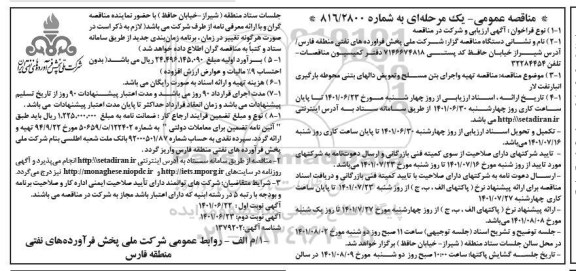 مناقصه عمومی- یک مرحله‌ای به شماره ۸۱٦/۲۸۰۰
۱-۱) نوع فراخوان: آگهی ارزیابی و شرکت در مناقصه
۲-۱) نام و نشانی دستگاه مناقصه گزار: شرکت ملی پخش فراورده های نفتی منطقه فارس/
آدرس شیراز، خیابان حافظ کد پستی ۷۱۴۶۶۷۴۸۱۸ دفتر کمیسیون مناقصات-
تلفن ۳۲۲۸۴۴۵۴
۳-۱) موضوع مناقصه: مناقصه تهیه واجرای بتن مسلح وتعویض دالهای بتنی محوطه بارگیری
انبارنفت لار
۴-۱) تاریخ ارائه، اسناد ارزیابی از روز چهار شنبه مورخ ۱۴۰۱/۰۶/۲۳ تا پایان
ساعت کاری روز چهارشنبه ۱۴۰۱/۰۶/۳۰ از طریق سامانه ستاد به آدرس اینترنتی
http\\setadiran.ir می باشد.
- تکمیل و تحویل اسناد ارزیابی از روز چهارشنبه ۱۴۰۱/۰۶/۳۰ تا پایان ساعت کاری روز شنبه
۱۴۰۱/۰۷/۱۶ می باشد.
- تایید شرکتهای دارای صلاحیت از سوی کمیته فنی بازرگانی و ارسال دعوتنامه به شرکتهای
مورد تایید از روز شنبه مورخ ۱۴۰۱/۰۷/۱۶ تا روز شنبه مورخ ۱۴۰۱/۰۷/۲۳ می باشد.
- ارسال دعوت نامه به شرکتهای دارای صلاحیت با تایید کمیته فنی بازرگانی و دریافت اسناد
مناقصه برای ارائه پیشنهاد نرخ ( پاکتهای الف، ب، ج ) از روز شنبه ۱۴۰۱/۰۷/۲۳ تا پایان ساعت
کاری چهارشنبه ۱۴۰۱/۰۷/۲۷
- ارائه پیشنهاد نرخ ( پاکتهای الف، ب، ج ) از روز چهارشنبه مورخ ۱۴۰۱/۰۷/۲۷ تا روز یک شنبه
مورخ ۱۴۰۱/۰۸/۰۸ می باشد.
- جلسه توضیح و تشریح اسناد (جلسه توجیهی) ساعت ۱۱ صبح روز دو شنبه مورخ ۱۴۰۱/۰۸/۰۲
در محل سالن جلسات ستاد منطقه ( شیراز- خیابان حافظ ) برگزار خواهد شد.
- تاریخ جلسه گشایش پاکتها: ساعت ۱۰:۰۰ صبح روز دو شنبه مورخ ۱۴۰۱/۰۸/۰۹ در سالن
جلسات ستاد منطقه (شیراز- خیابان حافظ ) با حضور نماینده مناقصه
گران و با ارائه معرفی نامه از طرف شرکت می باشد( لازم به ذکر است در
صورت هرگونه تغییر در زمان، برنامه زمان‌بندی جدید از طریق سامانه
ستاد و کتباً به مناقصه گران اطلاع داده خواهد شد )
۵-۱) برآورد اولیه مبلغ ۲۴،۴۹۶،۱۴۵،۰۹۰ ریال می باشد( بدون
احتساب ۹٪ مالیات و عوارض ارزش افزوده )
۶-۱) هزینه تهیه و ارائه اسناد به صورت رایگان می باشد.
۷-۱) مدت اجرای قرارداد ۹۰ روز می باشد و مدت اعتبار پیشنهادات ۹۰ روز از تاریخ تسلیم
پیشنهادات می باشد و زمان انعقاد قرارداد حداکثر تا پایان مدت اعتبار پیشنهادات می باشد.
۸-۱) نوع و مبلغ تضمین فرآیند ارجاع کار : ضمانت نامه به مبلغ ۱،۲۲۵،۰۰۰،۰۰۰ ریال باید طبق
" آئین نامه تضمین برای معاملات دولتی " به شماره ۱۲۳۴۰۲/ت۵۰۶۵۹ه مورخ ۹۴/۹/۲۲ تهیه و
ارائه گردد. سپرده نقدی به حساب شماره ۹۲۰۰۰۵۰۱/۸۷ بانک ملت شعبه اطلسی بنام شرکت ملی
پخش فراورده های نفتی منطقه فارس واریز گردد.
۲-مناقصه از طریق سامانه ستاد به آدرس اینترنتی http\\setadiran.ir انجام می پذیرد و آگهی
روزنامه در سایت‌های http://iets.mporg.ir و http://monaghese.niopdc.ir نیز درج می‌گردد.
۳- شرایط متقاضیان: شرکت های توانمند دارای تأیید صلاحیت ایمنی اداره کار و صلاحیت برنامه
و بودجه با رتبه ۵ در رشته ابنیه که دارای اعتبار باشد مجاز به شرکت در مناقصه می باشند.
آگهی نوبت اول : ۱۴۰۱/۰۶/۲۲
آگهی نوبت دوم: ۱۴۰۱/۰۶/۲۳
شناسه آگهی: ۱۳۷۹۲۰۲
۱/۰م الف - روابط عمومی شرکت ملی پخش فرآورده‌های نفتی
منطقه فارس
شرکت ملی پخش فرآورده‌های نفتی ایران